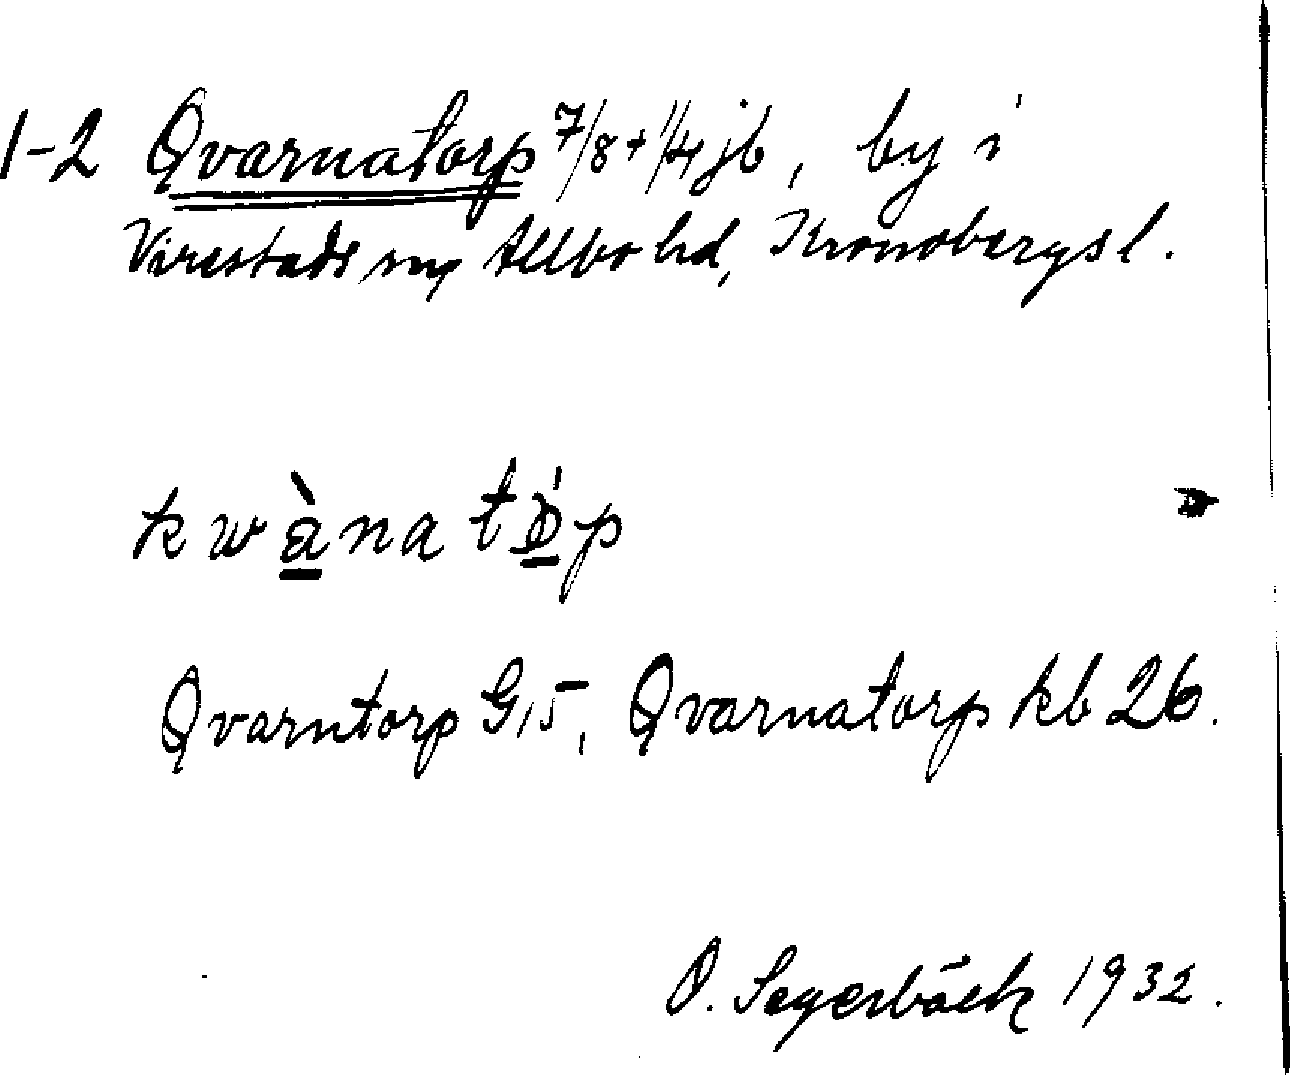 1-2 Qvarnatorp 7/8 + 1/4 jb, by i
Virestads sn, Allbo hd, Kronobergs l.
kwàna tɒ́p
Qvarntorp G15, Qvarnatorp kb 26.
O. Segerbäck 1932.